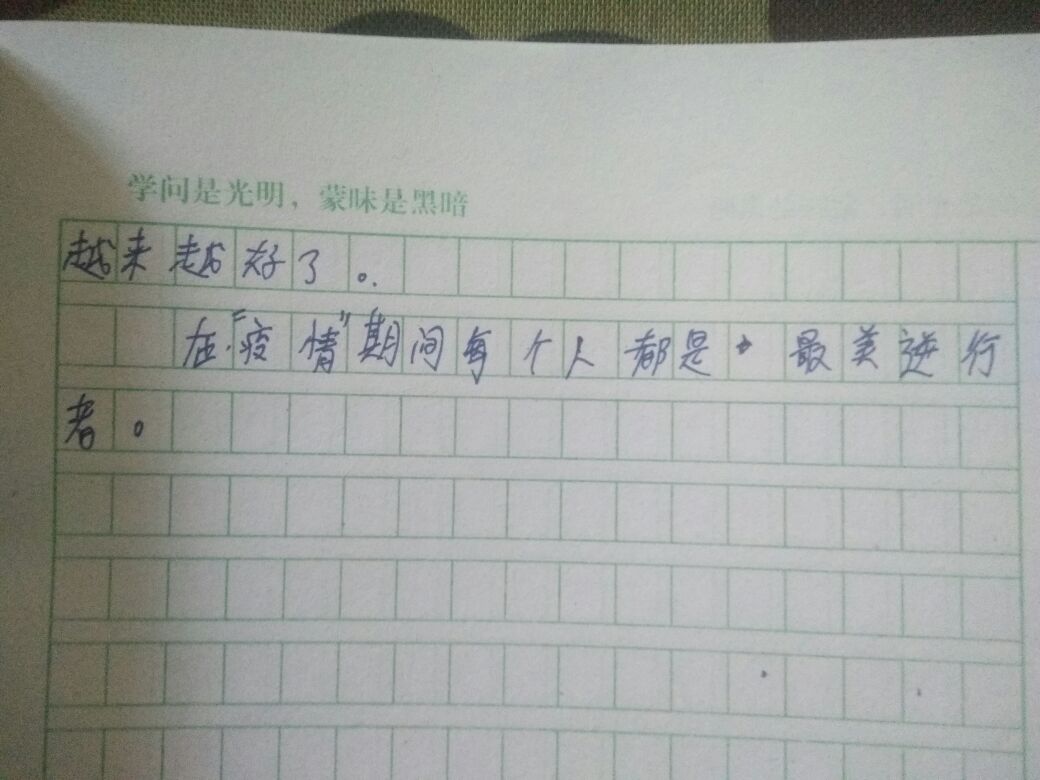 学问是光明，蒙昧是黑暗
越来越好了。
在“疫情”期间每个人都是最美逆行
者。